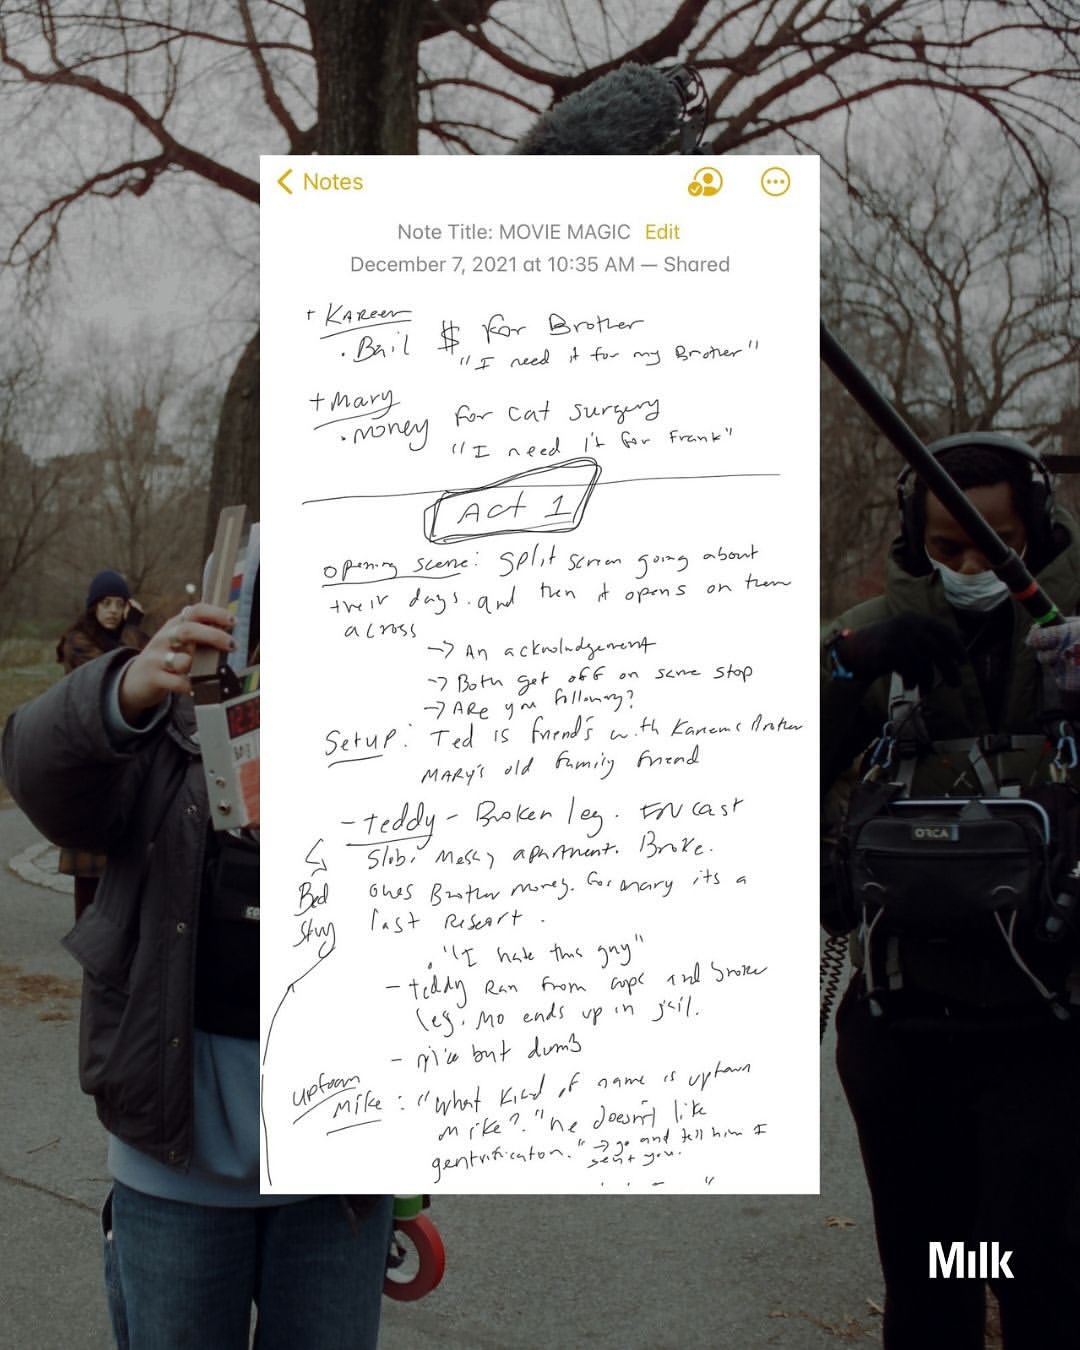 Notes
Note Title: MOVIE MAGIC Edit
December 7, 2021 at 10:35 AM — Shared
+ Kareem
. Bail $ for Brother
"I need it for my Brother"
+ Mary
. money for cat surgery
"I need it for Frank"
Act 1
opening scene: split screen going about
their days. and then it opens on them
across
→ An acknowledgement
→ Both get off on same stop
→ ARe you following?
Setup: Ted is friends with Kareems Brother
MARY's old family friend
- teddy - Broken leg. IN cast
Slob. Messy apartment. Broke.
Bed owes Brother money. for mary its a
Stuy last Resort.
. "I hate this guy"
- teddy Ran from cops and broke
leg. Mo ends up in jail.
- nice but dumb
uptown
Mike: "What kind of name is uptown
mike?" "he doesn't like
gentrification." → go and tell him I
sent you.
ORCA
Milk